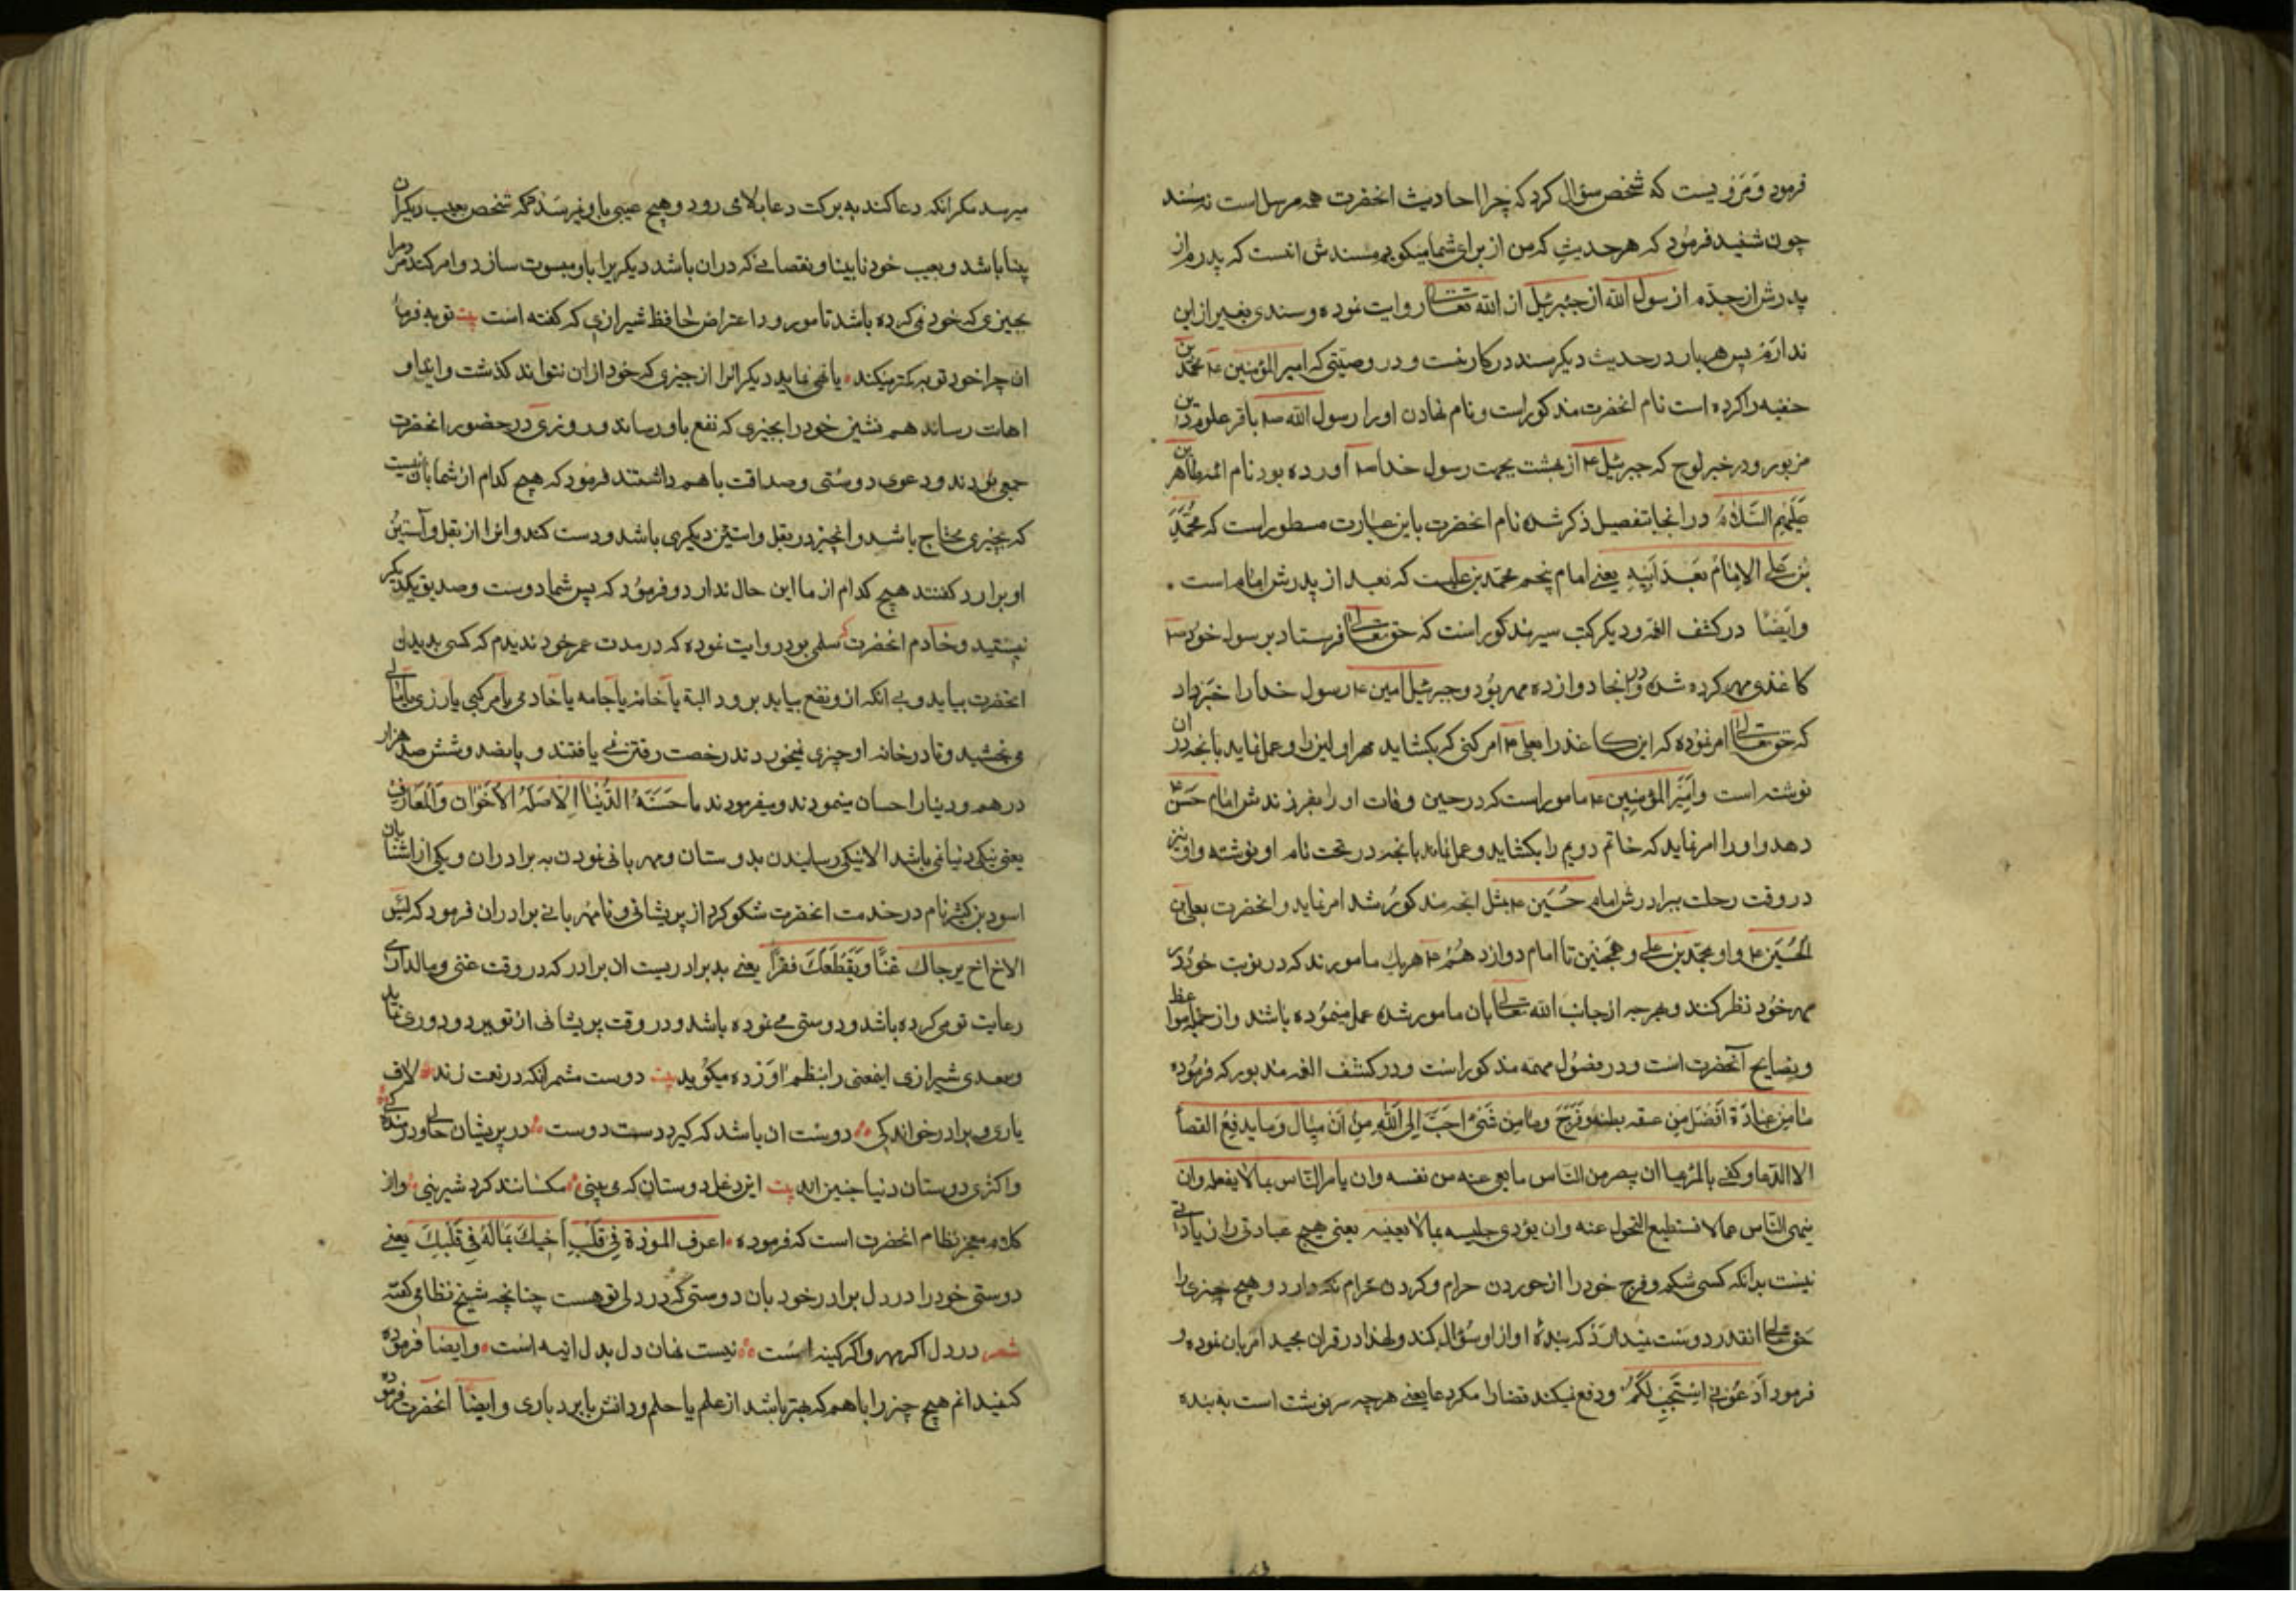 فرمود و مرویست که شخصی سؤال کرد که چرا احادیث انحضرت همه مرسل است نه مسند
چون شنید فرمود که هر حدیثی که من از برای شما میکویم مسندش انست که پدرم از
پدرش از جدّم از رسول الله از جبرئیل از الله تعالی روایت نموده و سندی بغیر از این
ندارم پس هر بار در حدیث دیکر سند در کار نیست و در وصیتی که امیر المؤمنین ع محمد بن
حنفیه را کرده است نام انحضرت مذکور است و نام نهادن او را رسول الله ص باقر علوم دین
مزبور و در خبر لوح که جبرئیل ع از بهشت بجهت رسول خدا ص آورده بود نام ائمه طاهرین
عَلَیْهِمُ السَّلامُ در انجا بتفصیل ذکر شده نام انحضرت باین عبارت مسطور است که مُحَمَّدِ
بْنِ عَلی الامامُ بَعْدَ اَبیهِ یعنی امام پنجم محمد بن علیست که بعد از پدرش امام است
وایضًا در کشف الغمه و دیکر کتب سیر مذکور است که حق تعالی فرستاد برسول خود ص
کاغذی مهر کرده شده و در انجا دوازده مهر بود و جبرئیل امین ع رسول خدا را خبر داد
که حق تعالی امر نموده که این کاغذ را بعلی ع امر کنی که بکشاید مهر اولین را و عمل نماید بانچه در ان
نوشته است و امیر المؤمنین ع مامور است که در حین وفات او را بفرزندش امام حسن ع
دهد و او را امر نماید که خاتم دویم را بکشاید و عمل نماید بانچه در تحت نام او نوشته و او نیز
در وقت رحلت ببرادرش امام حسین ع بمثل انچه مذکور شد امر نماید و انحضرت بعلی بن
الحُسَین ع و او بمحمد بن علی و همچنین تا امام دوازدهم ع هریک مامورند که در نوبت خود در
مهر خود نظر کنند و هرچه از جانب الله تعالی بان مامور شده عمل مینموده باشند و از جمله مواعظ
و نصایح آنحضرت است و در فصول مهمه مذکور است و در کشف الغمه مذبور که فرموده
مَا مِن عِبادَة اَفضَل مِن عفه بطن وفَرج وما مِن شَئ احَبَّ اِلی اللهِ مِن اَن یسال وَما یدفعُ القضا
الا الدعا وکفی بالمرء عیبا ان یبصر من النّاس ما یعمی عنه من نفسه وان یامر النّاس بما لا یفعله وان
ینهی النّاس عما لا یستطیع التحول عنه وان یؤذی جلیسه بما لا یعنیه یعنی هیچ عبادتی را زیادتی
نیست بر انکه کسی شکم و فرج خود را از خوردن حرام و کردن حرام نکه دارد و هیچ چیزی را
حق تعالی انقدر دوست نمیدارد که بندهٔ او از او سؤال کند و لهذا در قران مجید امر بان نموده و
فرمود اُدْعُونی اَسْتَجِبْ لَکُمْ و دفع نمیکند قضا را مکر دعا یعنی هرچه سرنوشت است به بنده
میرسد مکر انکه دعا کند به برکت دعا بلا می رود و هیچ عیبی باو نمیرسد که شخص بعیب دیکران
بینا باشد و بعیب خود نابینا و نقصانی که در ان باشد دیکریرا باو منسوب سازد و امر کند مردم را
بچیزی که خود نمی کرده باشد تا مورود اعتراض حافظ شیرازی که کفته است بیت توبه فرما
ان چرا خود توبه کمتر میکنند یا نهی نماید دیکرانرا از چیزی که خود از ان نتواند کذشت و ایذا و
اهانت رساند هم نشین خود را بچیزی که نفع باو رساند و روزی در حضور انحضرت
جمعی بودند و دعوی دوستی و صداقت با هم داشتند فرمود که هیچ کدام از شما بان نیست
که بچیزی محتاج باشد و انچیز در بغل و استین دیکری باشد و دست کند و انرا از بغل و آستین
او برارد کفتند هیچ کدام از ما این حال ندارد و فرمود که پس شما دوست و صدیق یکدیکر
نیستید و خادم انحضرت که سلمی بود روایت نموده که در مدت عمر خود ندیدم که کسی بدیدن
انحضرت بیاید و بی انکه از و نفع بیابد برود البته یا خانه یا جامه یا خادمی یا مرکبی یا زری یا مالی
می بخشید و تا در خانه او چیزی نمیخوردند رخصت رفتن نمی یافتند و پانصد و شش صد هزار
درهم و دینار احسان مینمودند و میفرمودند ما حَسَنَةُ الدُّنْیا اِلاّ صِلَةُ الاَخْوان وَالْمَعارف
یعنی نیکی دنیا نمی باشد الا نیکی رسانیدن بدوستان و مهربانی نمودن به برادران و یکی از اشنایان
اسود بن کثیر نام در خدمت انحضرت شکوه کرد از پریشانی و نامهربانی برادران فرمود که بئس
الاخ اخ یرعاک غنیًّا ویَقطَعُکَ فقیرًا یعنی بد برادریست ان برادر که در وقت غنی و مالداری
رعایت تو می کرده باشد و دوستی می نموده باشد و در وقت پریشانی از تو ببرد و دوری نماید
و سعدی شیرازی اینمعنی را بنظم اورده میکوید بیت دوست مشمر انکه در نعمت زند لاف
یاری و برادر خواندکی دوست ان باشد که کیرد دست دوست در پریشان حالی و درماندکی
و اکثری دوستان دنیا چنین اند بیت این دغل دوستان که می بینی مکسانند کرد شیرینی و از
کلام معجز نظام انحضرت است که فرموده اعرف المودة فِی قَلْبِ اَخیکَ بِمَا لَهُ فِی قَلْبِکَ یعنی
دوستی خود را در دل برادر خود بان دوستی که در دل تو هست چنانچه شیخ نظامی کفته
شعر در دل اکر مهر و اکر کینه است نیست نهان دل بدل ائینه است و ایضًا فرموده
که نمیدانم هیچ چیز را با هم که بهتر باشد از علم با حلم و دانش با بردباری و ایضًا انحضرت فرموده